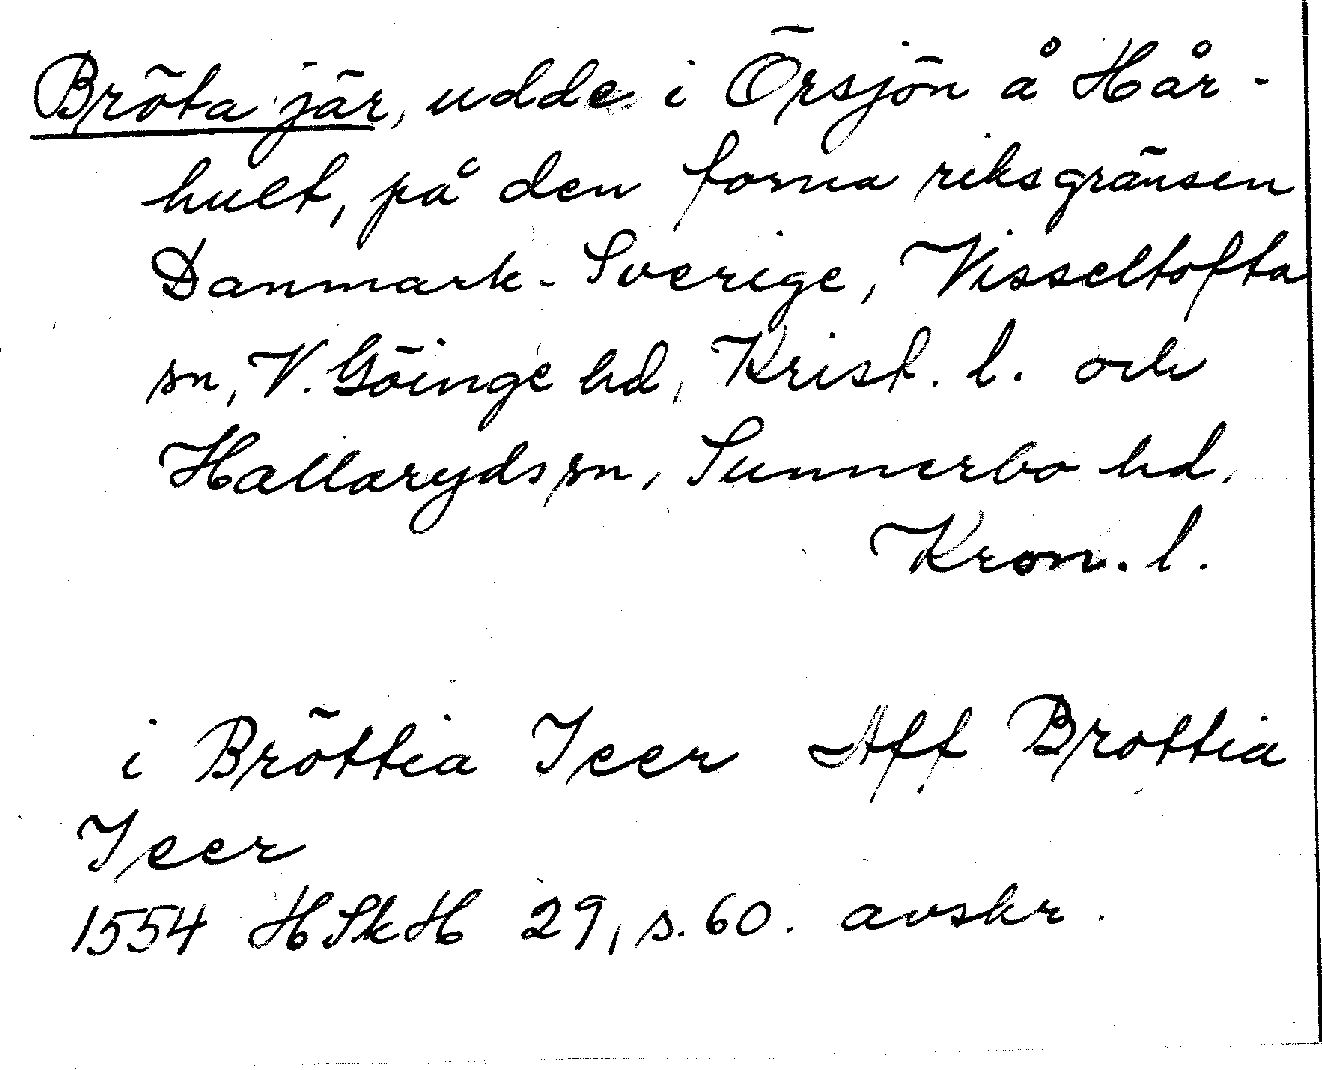 Bröta jär, udde i Örsjön å Hår-
hult, på den forna riksgränsen
Danmark-Sverige, Visseltofta
sn, V. Göinge hd, Krist. l. och
Hallaryds sn, Sunnerbo hd,
Kron. l.
i Bröttia Jeer Aff Brottia
Jeer
1554 HSkH 29, s. 60. avskr.